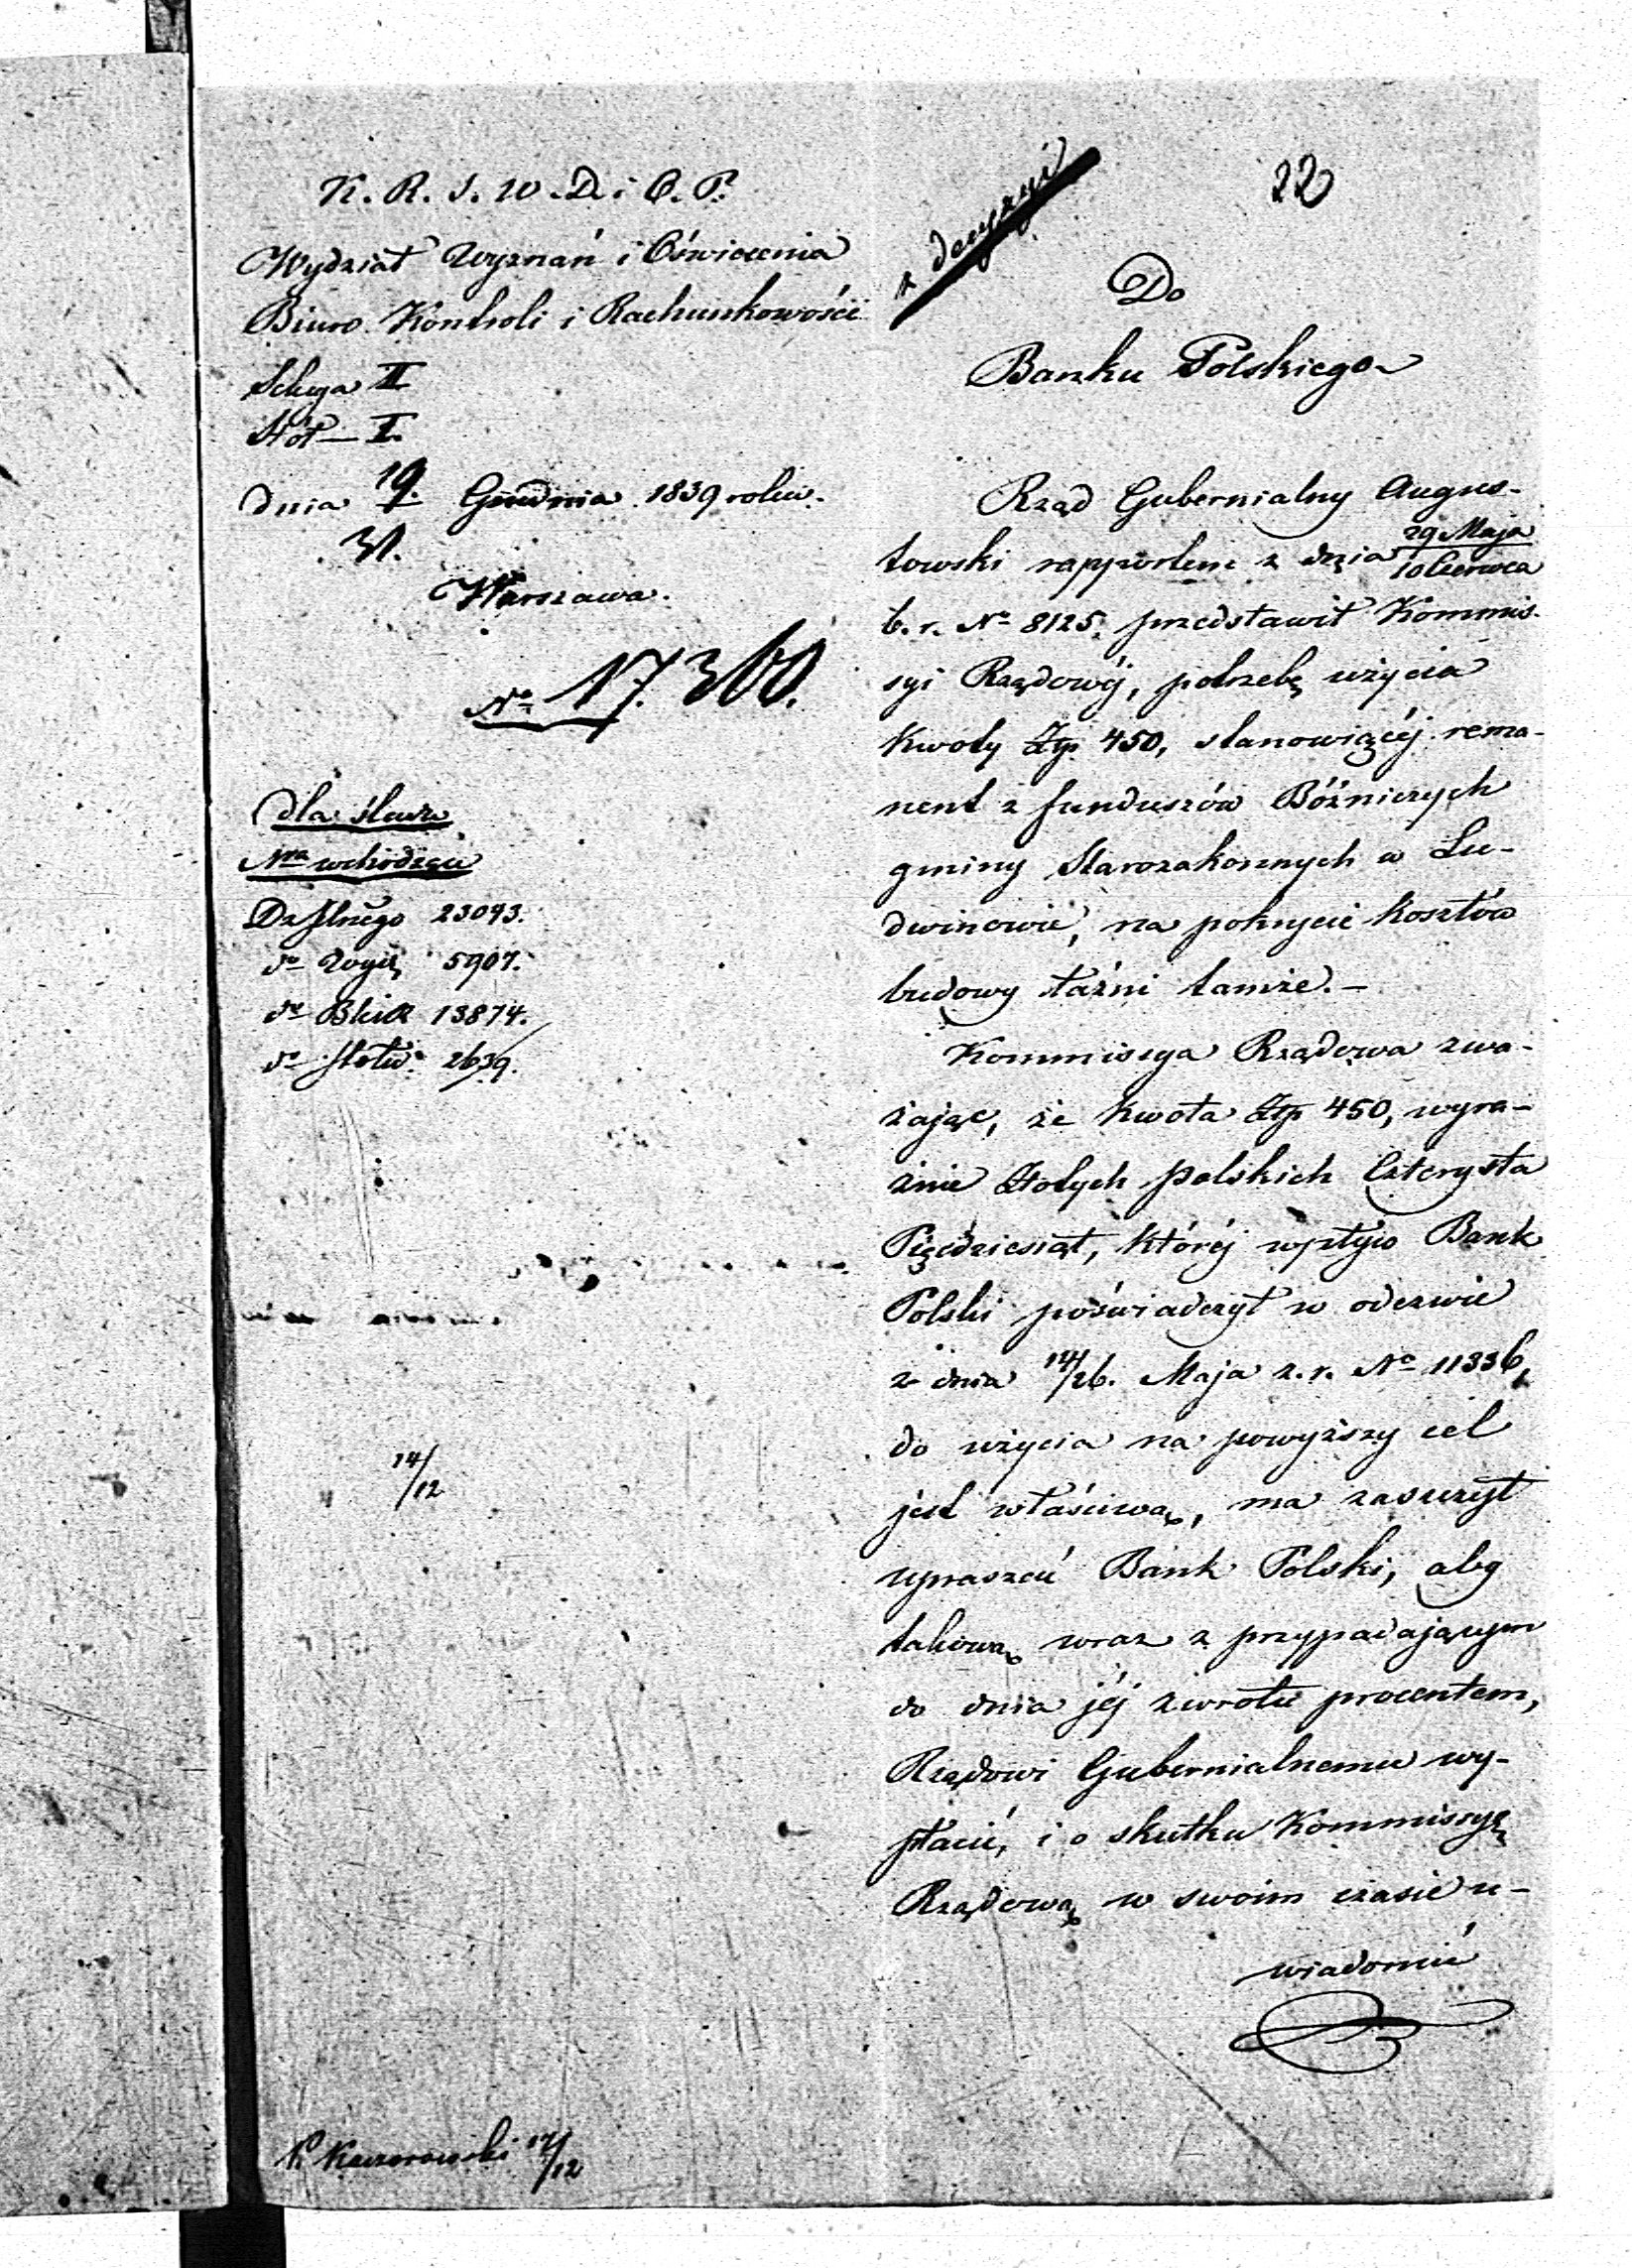 K. R. S. W. D. i O. P.
Wydział Wyznań i Oświecenia
Biuro Kontroli i Rachunkowości
Sekcya II
Stół — I.
dnia 19. Grudnia 1839 roku.
31.
Warszawa.
No 17.360.
dla śladu
Nra wchodzące
Dz. 23093.
do 5907.
do 13874.
do 2639.
14/12
K Kaczorowski 17/12
z decyzyi
22
Do
Banku Polskiego
Rząd Gubernialny Augus-
towski rapportem z dnia 29 Maja
10 Czerwca
b. r. No 8125, przedstawił Kommis-
syi Rządowéj, potrzebę użycia
kwoty Złp. 450, stanowiącéj rema-
nent z funduszów Bóżniczych
gminy Starozakonnych w Lu-
dwinowie, na pokrycie kosztów
budowy łaźni tamże. —
Kommissya Rządowa zwa-
żając, że kwota Złp 450, wyra-
źnie Złotych polskich Czterysta
Pięćdziesiąt, któréj wpływ Bank
Polski poświadczył w odezwie
z dnia 14/26. Maja z. r. No 11336,
do użycia na powyższy cel
jest właściwą, ma zaszczyt
upraszać Bank Polski, aby
takową wraz z przypadającym
do dnia jéj zwrotu procentem,
Rządowi Gubernialnemu wy-
płacić, i o skutku Kommissyę
Rządową w swoim czasie u-
wiadomić